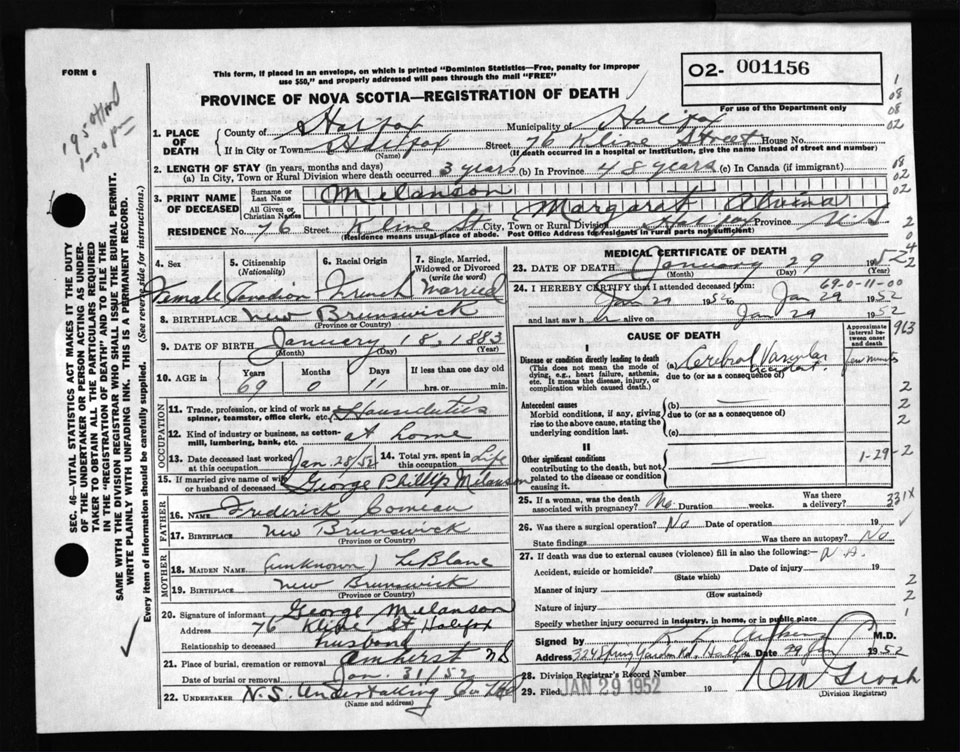 FORM 6
This form, if placed in an envelope, on which is printed "Dominion Statistics—Free, penalty for improper
use $50," and properly addressed will pass through the mail "FREE"
02- 001156
PROVINCE OF NOVA SCOTIA—REGISTRATION OF DEATH
For use of the Department only
1. PLACE OF DEATH
County of Halifax Municipality of Halifax
If in City or Town Halifax Street 76 Kline Street House No.
(Name) (If death occurred in a hospital or institution, give the name instead of street and number)
2. LENGTH OF STAY (in years, months and days)
(a) In City, Town or Rural Division where death occurred 3 years (b) In Province 48 years (c) In Canada (if immigrant)
3. PRINT NAME OF DECEASED
Surname or Last Name Melanson
All Given or Christian Names Margaret Alvina
RESIDENCE No. 76 Street Kline St City, Town or Rural Division Halifax Province N.S.
(Residence means usual place of abode. Post Office Address for residents in rural parts not sufficient)
4. Sex Female
5. Citizenship (Nationality) Canadian
6. Racial Origin French
7. Single, Married, Widowed or Divorced (write the word) Married
8. BIRTHPLACE New Brunswick
(Province or Country)
9. DATE OF BIRTH January 18, 1883
(Month) (Day) (Year)
10. AGE in Years 69 Months 0 Days 11 If less than one day old
hrs. or min.
OCCUPATION
11. Trade, profession, or kind of work as spinner, teamster, office clerk, etc. Houseduties
12. Kind of industry or business, as cotton-mill, lumbering, bank, etc. at home
13. Date deceased last worked at this occupation Jan 28/52
14. Total yrs. spent in this occupation Life
15. If married give name of wife or husband of deceased George Phillip Melanson
FATHER
16. NAME Frederick Comeau
17. BIRTHPLACE New Brunswick
(Province or Country)
MOTHER
18. MAIDEN NAME (unknown) LeBlanc
19. BIRTHPLACE New Brunswick
(Province or Country)
20. Signature of informant George Melanson
Address 76 Kline St Halifax
Relationship to deceased husband
21. Place of burial, cremation or removal Amherst NS
Date of burial or removal Jan. 31/52
22. UNDERTAKER N.S. Undertaking Co Ltd
(NAME AND ADDRESS)
MEDICAL CERTIFICATE OF DEATH
23. DATE OF DEATH January 29 1952
(Month) (Day) (Year)
24. I HEREBY CERTIFY that I attended deceased from:
69-0-11-00
Jan 29 1952 to Jan 29 1952
and last saw her alive on Jan 29 1952
CAUSE OF DEATH
Approximate interval between onset and death
I
Disease or condition directly leading to death
(This does not mean the mode of dying, e.g., heart failure, asthenia, etc. It means the disease, injury, or complication which caused death.)
(a) Cerebral Vascular accident few minutes
due to (or as a consequence of)
Antecedent causes
Morbid conditions, if any, giving rise to the above cause, stating the underlying condition last.
(b)
due to (or as a consequence of)
(c)
II
Other significant conditions
contributing to the death, but not related to the disease or condition causing it.
1-29-2
25. If a woman, was the death associated with pregnancy? No Duration weeks. Was there a delivery?
331X
26. Was there a surgical operation? No Date of operation 19
State findings Was there an autopsy? No
27. If death was due to external causes (violence) fill in also the following:- N.A.
Accident, suicide or homicide? Date of injury 19
(State which)
Manner of injury
(How sustained)
Nature of injury
Specify whether injury occurred in industry, in home, or in public place
Signed by M.D.
Address 324 Spring Garden Rd. Halifax Date 29 Jan 1952
28. Division Registrar's Record Number
29. Filed JAN 29 1952 19
(Division Registrar)
SEC. 46—VITAL STATISTICS ACT MAKES IT THE DUTY
OF THE UNDERTAKER OR PERSON ACTING AS UNDER-
TAKER TO OBTAIN ALL THE PARTICULARS REQUIRED
IN THE "REGISTRATION OF DEATH" AND TO FILE THE
SAME WITH THE DIVISION REGISTRAR WHO SHALL ISSUE THE BURIAL PERMIT.
WRITE PLAINLY WITH UNFADING INK. THIS IS A PERMANENT RECORD.
Every item of information should be carefully supplied. (See reverse side for instructions.)